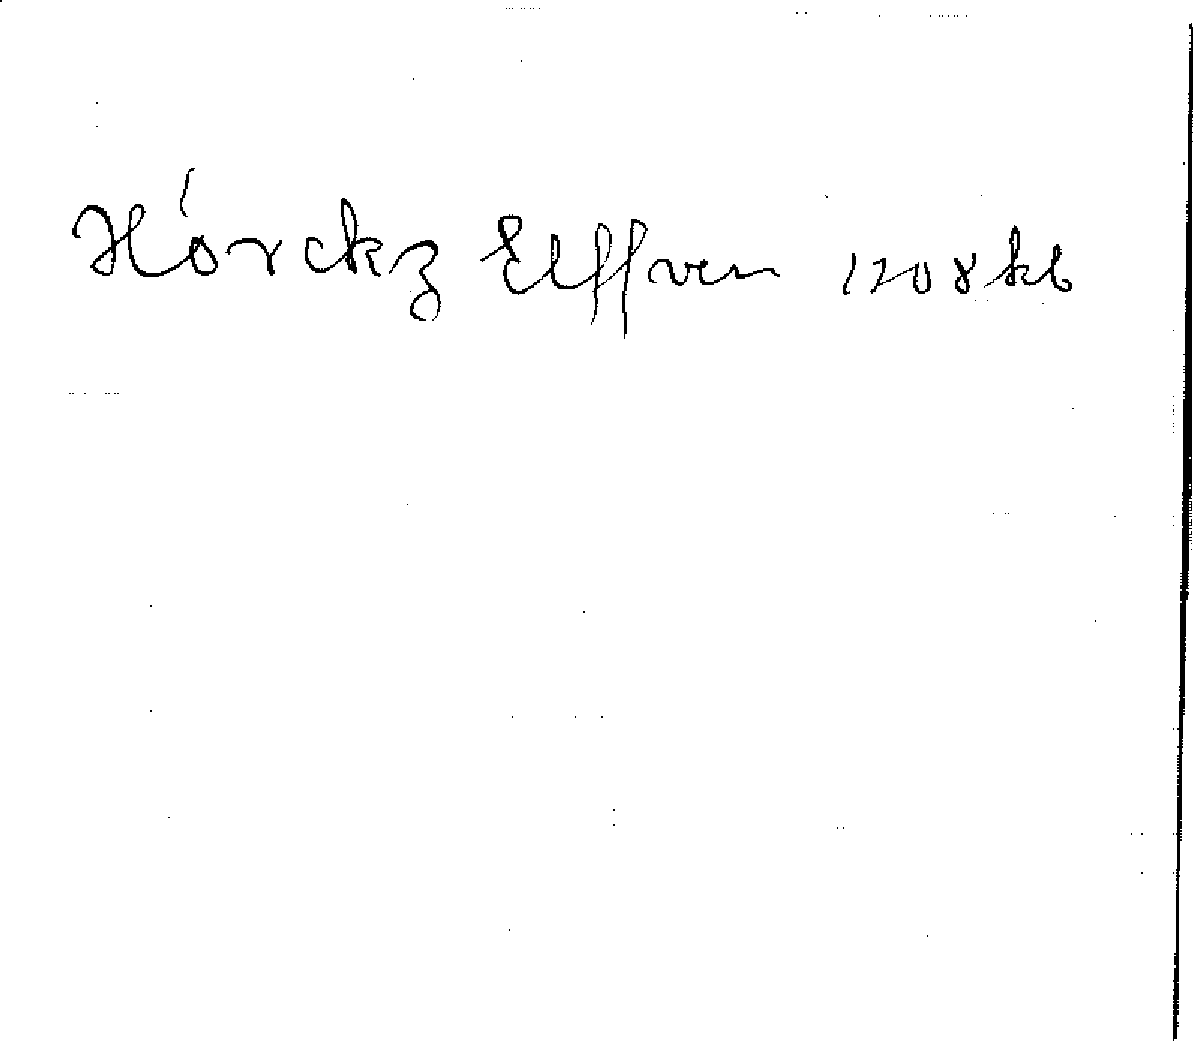 Hórckz Elffven 1208 kb